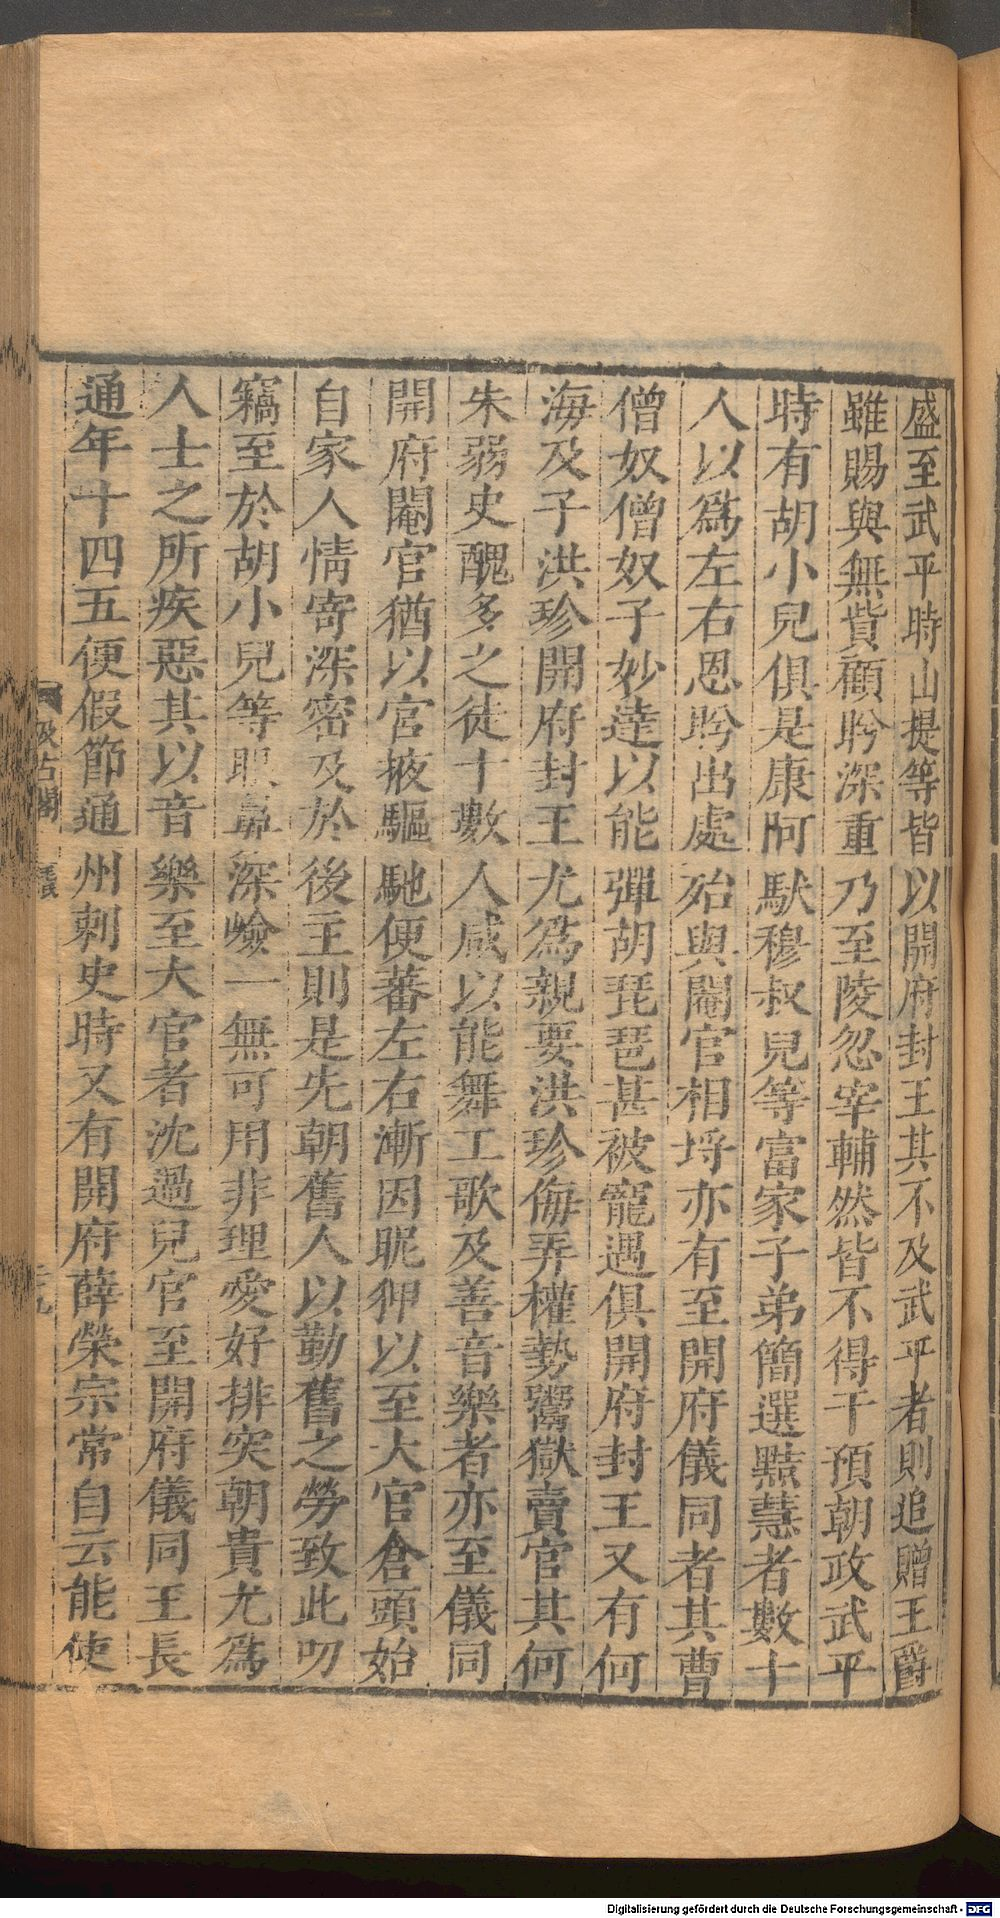 盛至武平時山提等皆以開府封王其不及武平者則追贈王爵
雖賜與無貲顧盻深重乃至陵忽宰輔然皆不得干預朝政武平
時有胡小兒俱是康阿馱穆叔兒等富家子弟簡選黠慧者數十
人以爲左右恩盻出處殆與閹官相埒亦有至開府儀同者其曹
僧奴僧奴子妙達以能彈胡琵琶甚被寵遇俱開府封王又有何
海及子洪珍開府封王尤爲親要洪珍侮弄權勢鬻獄賣官其何
朱弱史醜多之徒十數人咸以能舞工歌及善音樂者亦至儀同
開府閹官猶以宮掖驅馳便蕃左右漸因昵狎以至大官倉頭始
自家人情寄深密及於後主則是先朝舊人以勤舊之勞致此叨
竊至於胡小兒等眼鼻深嶮一無可用非理愛好排突朝貴尤爲
人士之所疾惡其以音樂至大官者沈過兒官至開府儀同王長
通年十四五便假節通州刺史時又有開府薛榮宗常自云能使
汲古閣
Digitalisierung gefördert durch die Deutsche Forschungsgemeinschaft - DFG